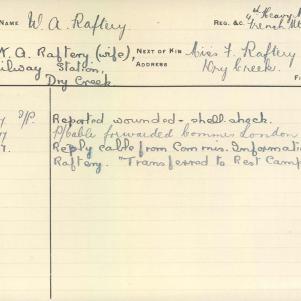 NAME W. A. Raftery REG. &C. 4th Heavy
Trench M
A. Raftery (wife), NEXT OF KIN Miss F. Raftery
ilway Station, ADDRESS Dry Creek.
Dry Creek. F
S/P. Reported wounded - shell shock.
7 P/cable forwarded Commis London
7. Reply cable from Commis. Informatio
Raftery. "Transferred to Rest Camp